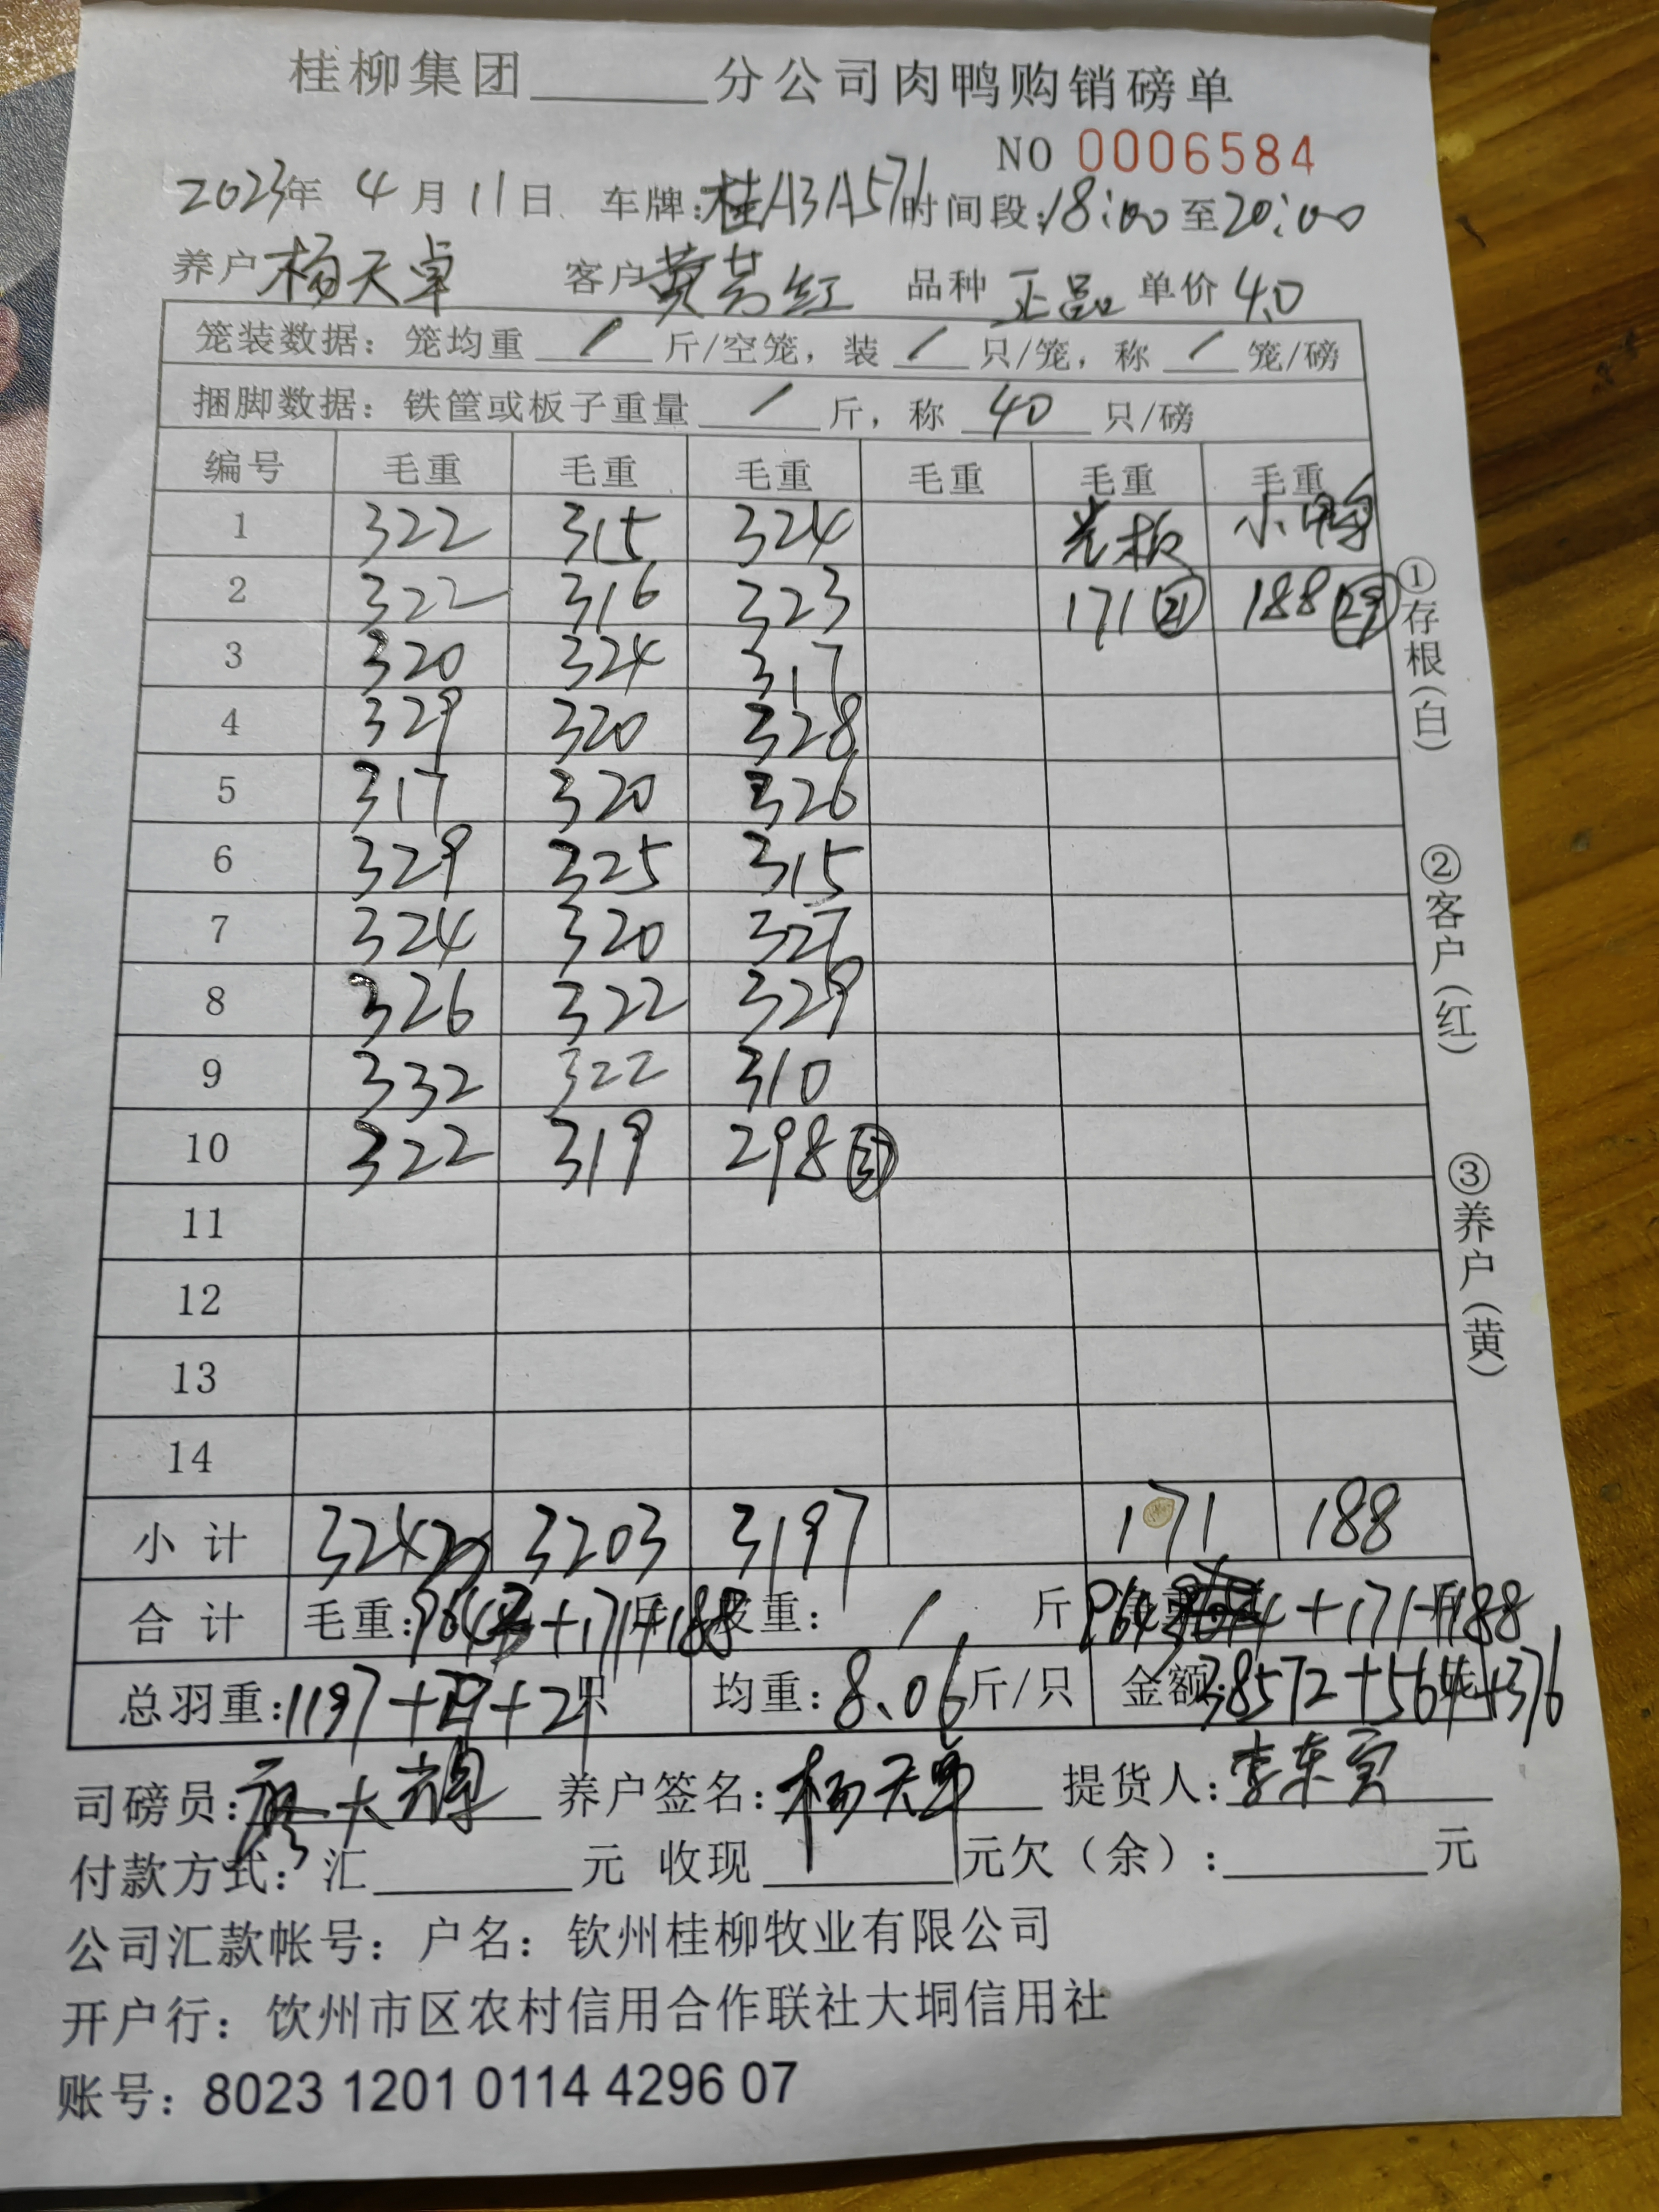 桂柳集团______分公司肉鸭购销磅单
NO 0006584
2023年 4月11日 车牌:桂A3A571 时间段:18:00至20:00
养户 杨天卓 客户 黄芳红 品种 正品 单价 4.0
笼装数据:笼均重 / 斤/空笼,装 / 只/笼,称 / 笼/磅
捆脚数据:铁筐或板子重量 / 斤,称 40 只/磅
编号 毛重 毛重 毛重 毛重 毛重 毛重
1 322 315 324 光板 小鸭
2 322 316 323 171 21 188 29
3 320 324 317
4 329 320 328
5 317 320 326
6 329 325 315
7 324 320 327
8 326 322 329
9 332 322 310
10 322 319 298 37
11
12
13
14
小计 3243 3203 3197 171 188
合计 毛重:9643+171+188 斤 皮重: / 斤 9643+171+188 斤
总羽重:1197+21+29只 均重:8.06斤/只 金额:38572+564+376
司磅员: 养户签名:杨天卓 提货人:李东宾
付款方式:汇______元 收现______元欠(余):______元
公司汇款帐号:户名:钦州桂柳牧业有限公司
开户行:饮州市区农村信用合作联社大垌信用社
账号:8023 1201 0114 4296 07
①存根(白)
②客户(红)
③养户(黄)